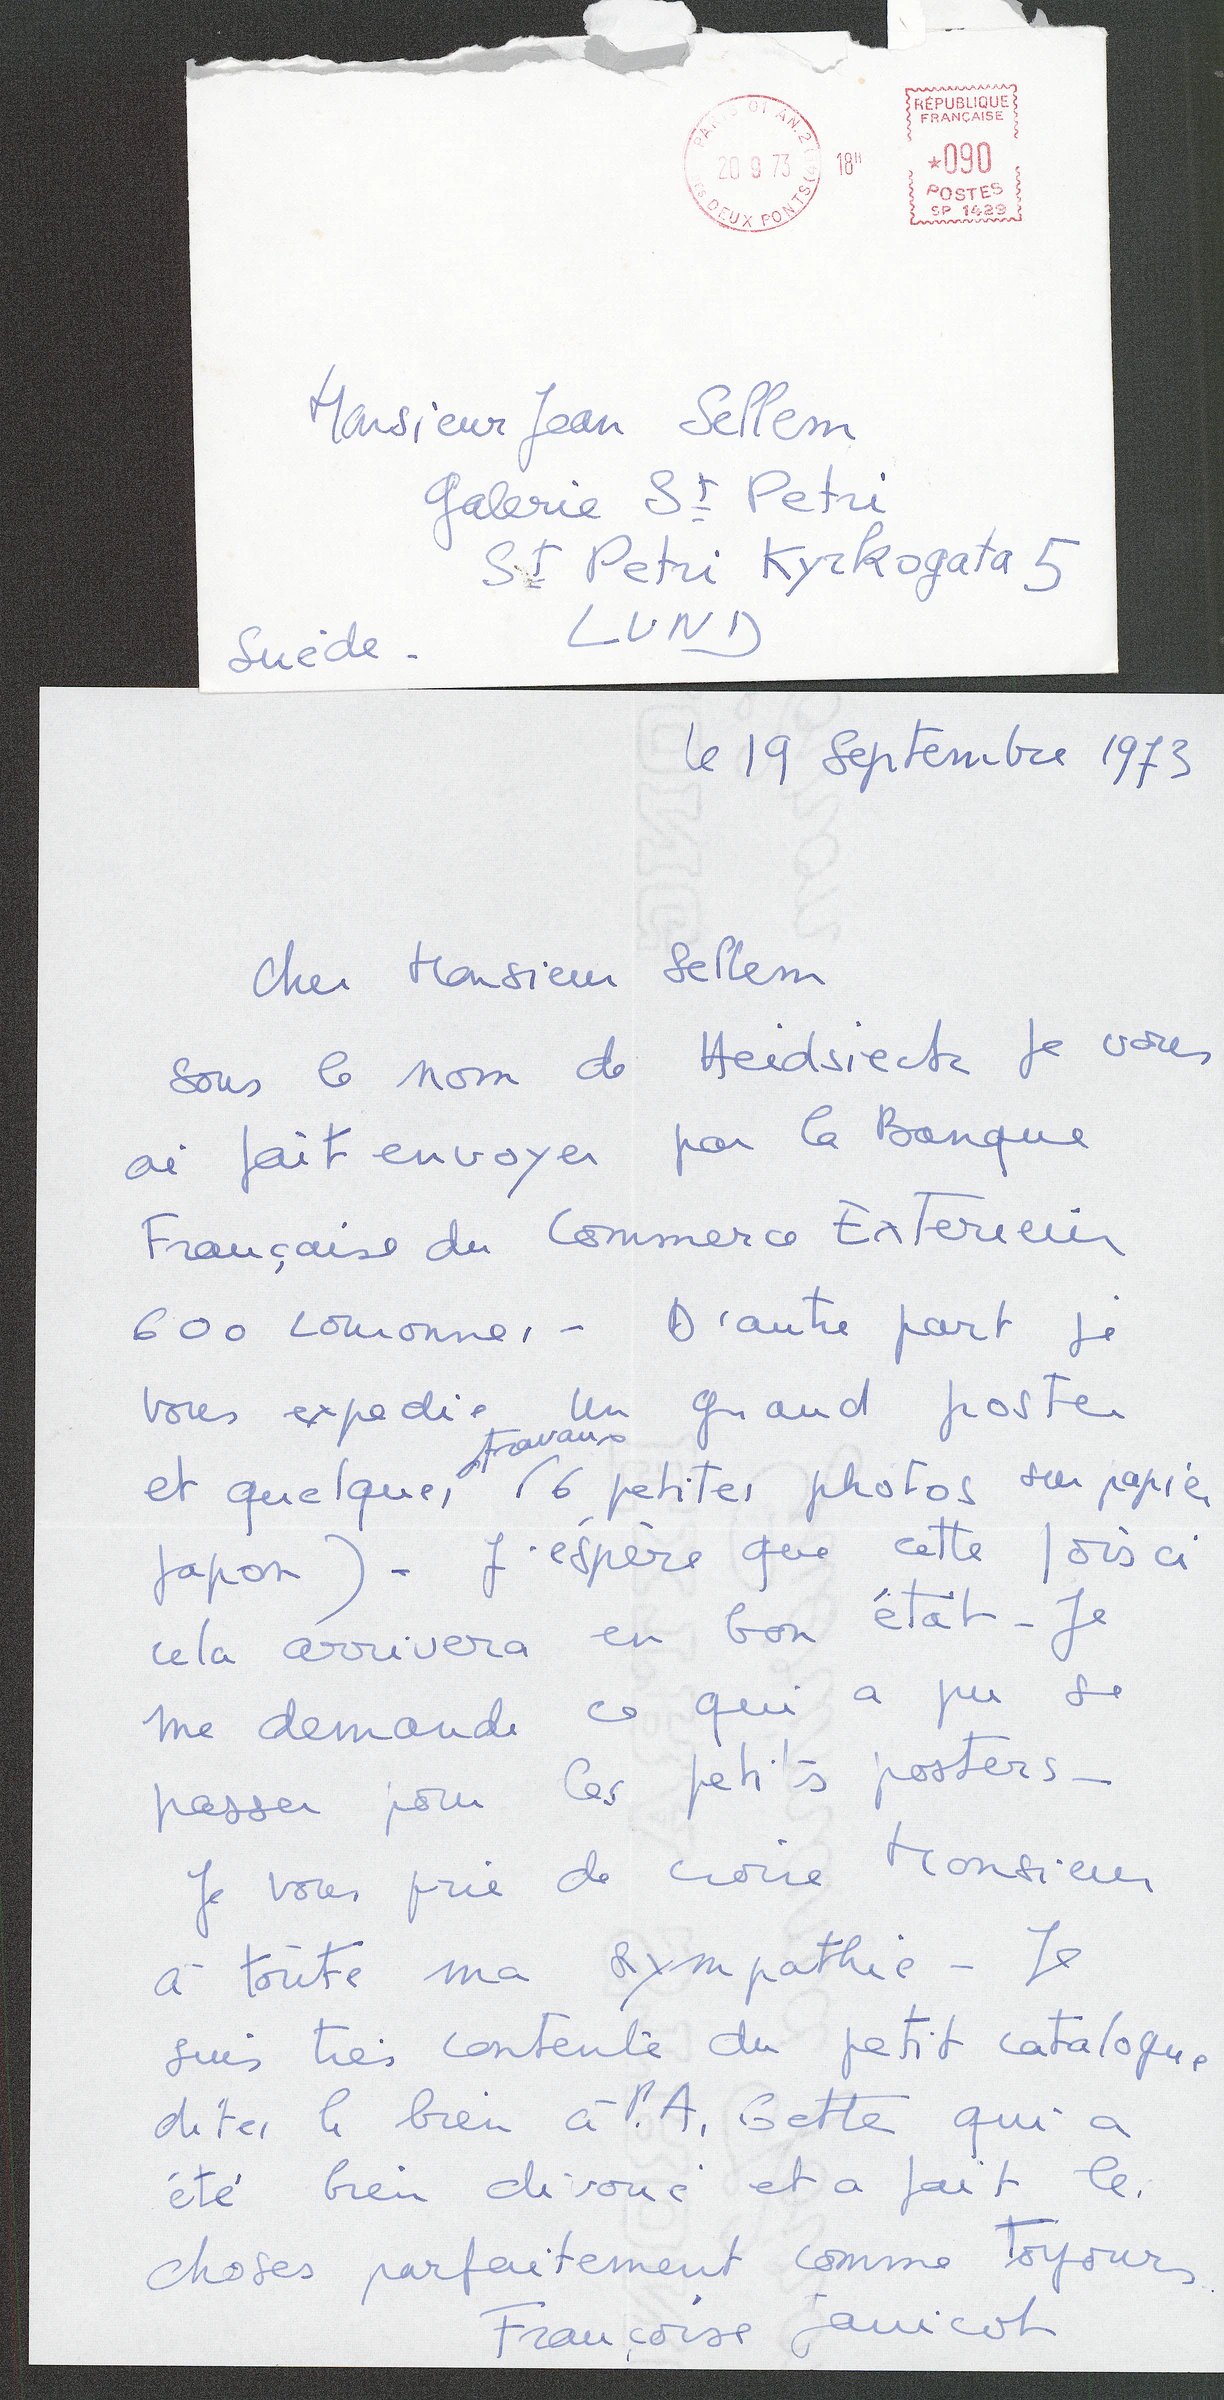 PARIS 01 AN. 2
20 9 73
DEUX PONTS
18H
RÉPUBLIQUE
FRANÇAISE
*090
POSTES
SP 1429
Monsieur Jean Sellem
Galerie St Petri
St Petri Kyrkogata 5
LUND
Suède -
le 19 Septembre 1973
Cher Monsieur Sellem
sous le nom de Heidsieck je vous
ai fait envoyer par la Banque
Française du Commerce Exterieur
600 couronnes - D'autre part je
vous expedie un grand poster
et quelques travaux (6 petites photos sur papier
japon) - J'éspère que cette fois ci
cela arrivera en bon état - Je
me demande ce qui a pu se
passer pour les petits posters -
Je vous prie de croire Monsieur
à toute ma sympathie - Je
suis très contente du petit catalogue
dites le bien à P.A. Gette qui a
été bien dévoué et a fait les
choses parfaitement comme Toujours.
Françoise Janicot